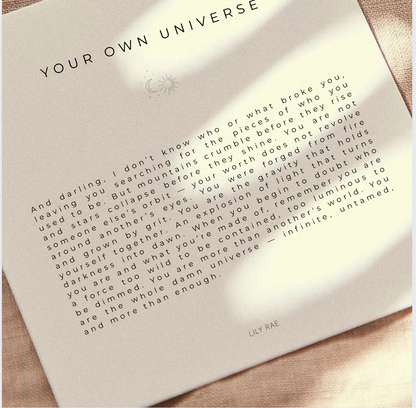 YOUR OWN UNIVERSE
And darling, I don't know who or what broke you,
leaving you searching for the pieces of who you
used to be. But mountains crumble before they rise
and stars collapse before they shine. You are not
someone else's orbit — your worth does not revolve
around another's eyes. You were forged from fire
and grown by grit. You are the gravity that holds
yourself together. An explosion of light that turns
darkness into dawn. When you begin to doubt who
you are and what you're made of, remember you are
a force too wild to be contained, too luminous to
be dimmed. You are more than another's world. You
are the whole damn universe — infinite, untamed.
and more than enough.
LILY RAE